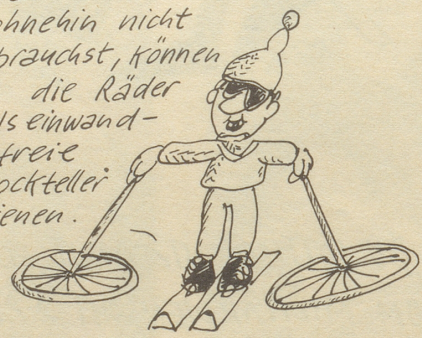 ohnehin nicht
brauchst, können
die Räder
als einwand-
freie
ockteller
ienen.